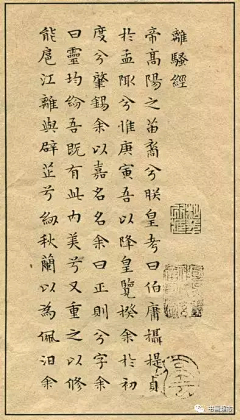 離騷經
帝高陽之苗裔兮朕皇考曰伯庸攝提貞
於孟陬兮惟庚寅吾以降皇覽揆余於初
度兮肇錫余以嘉名名余曰正則兮字余
曰靈均紛吾既有此内美兮又重之以修
能扈江離與辟芷兮紉秋蘭以為佩汩余